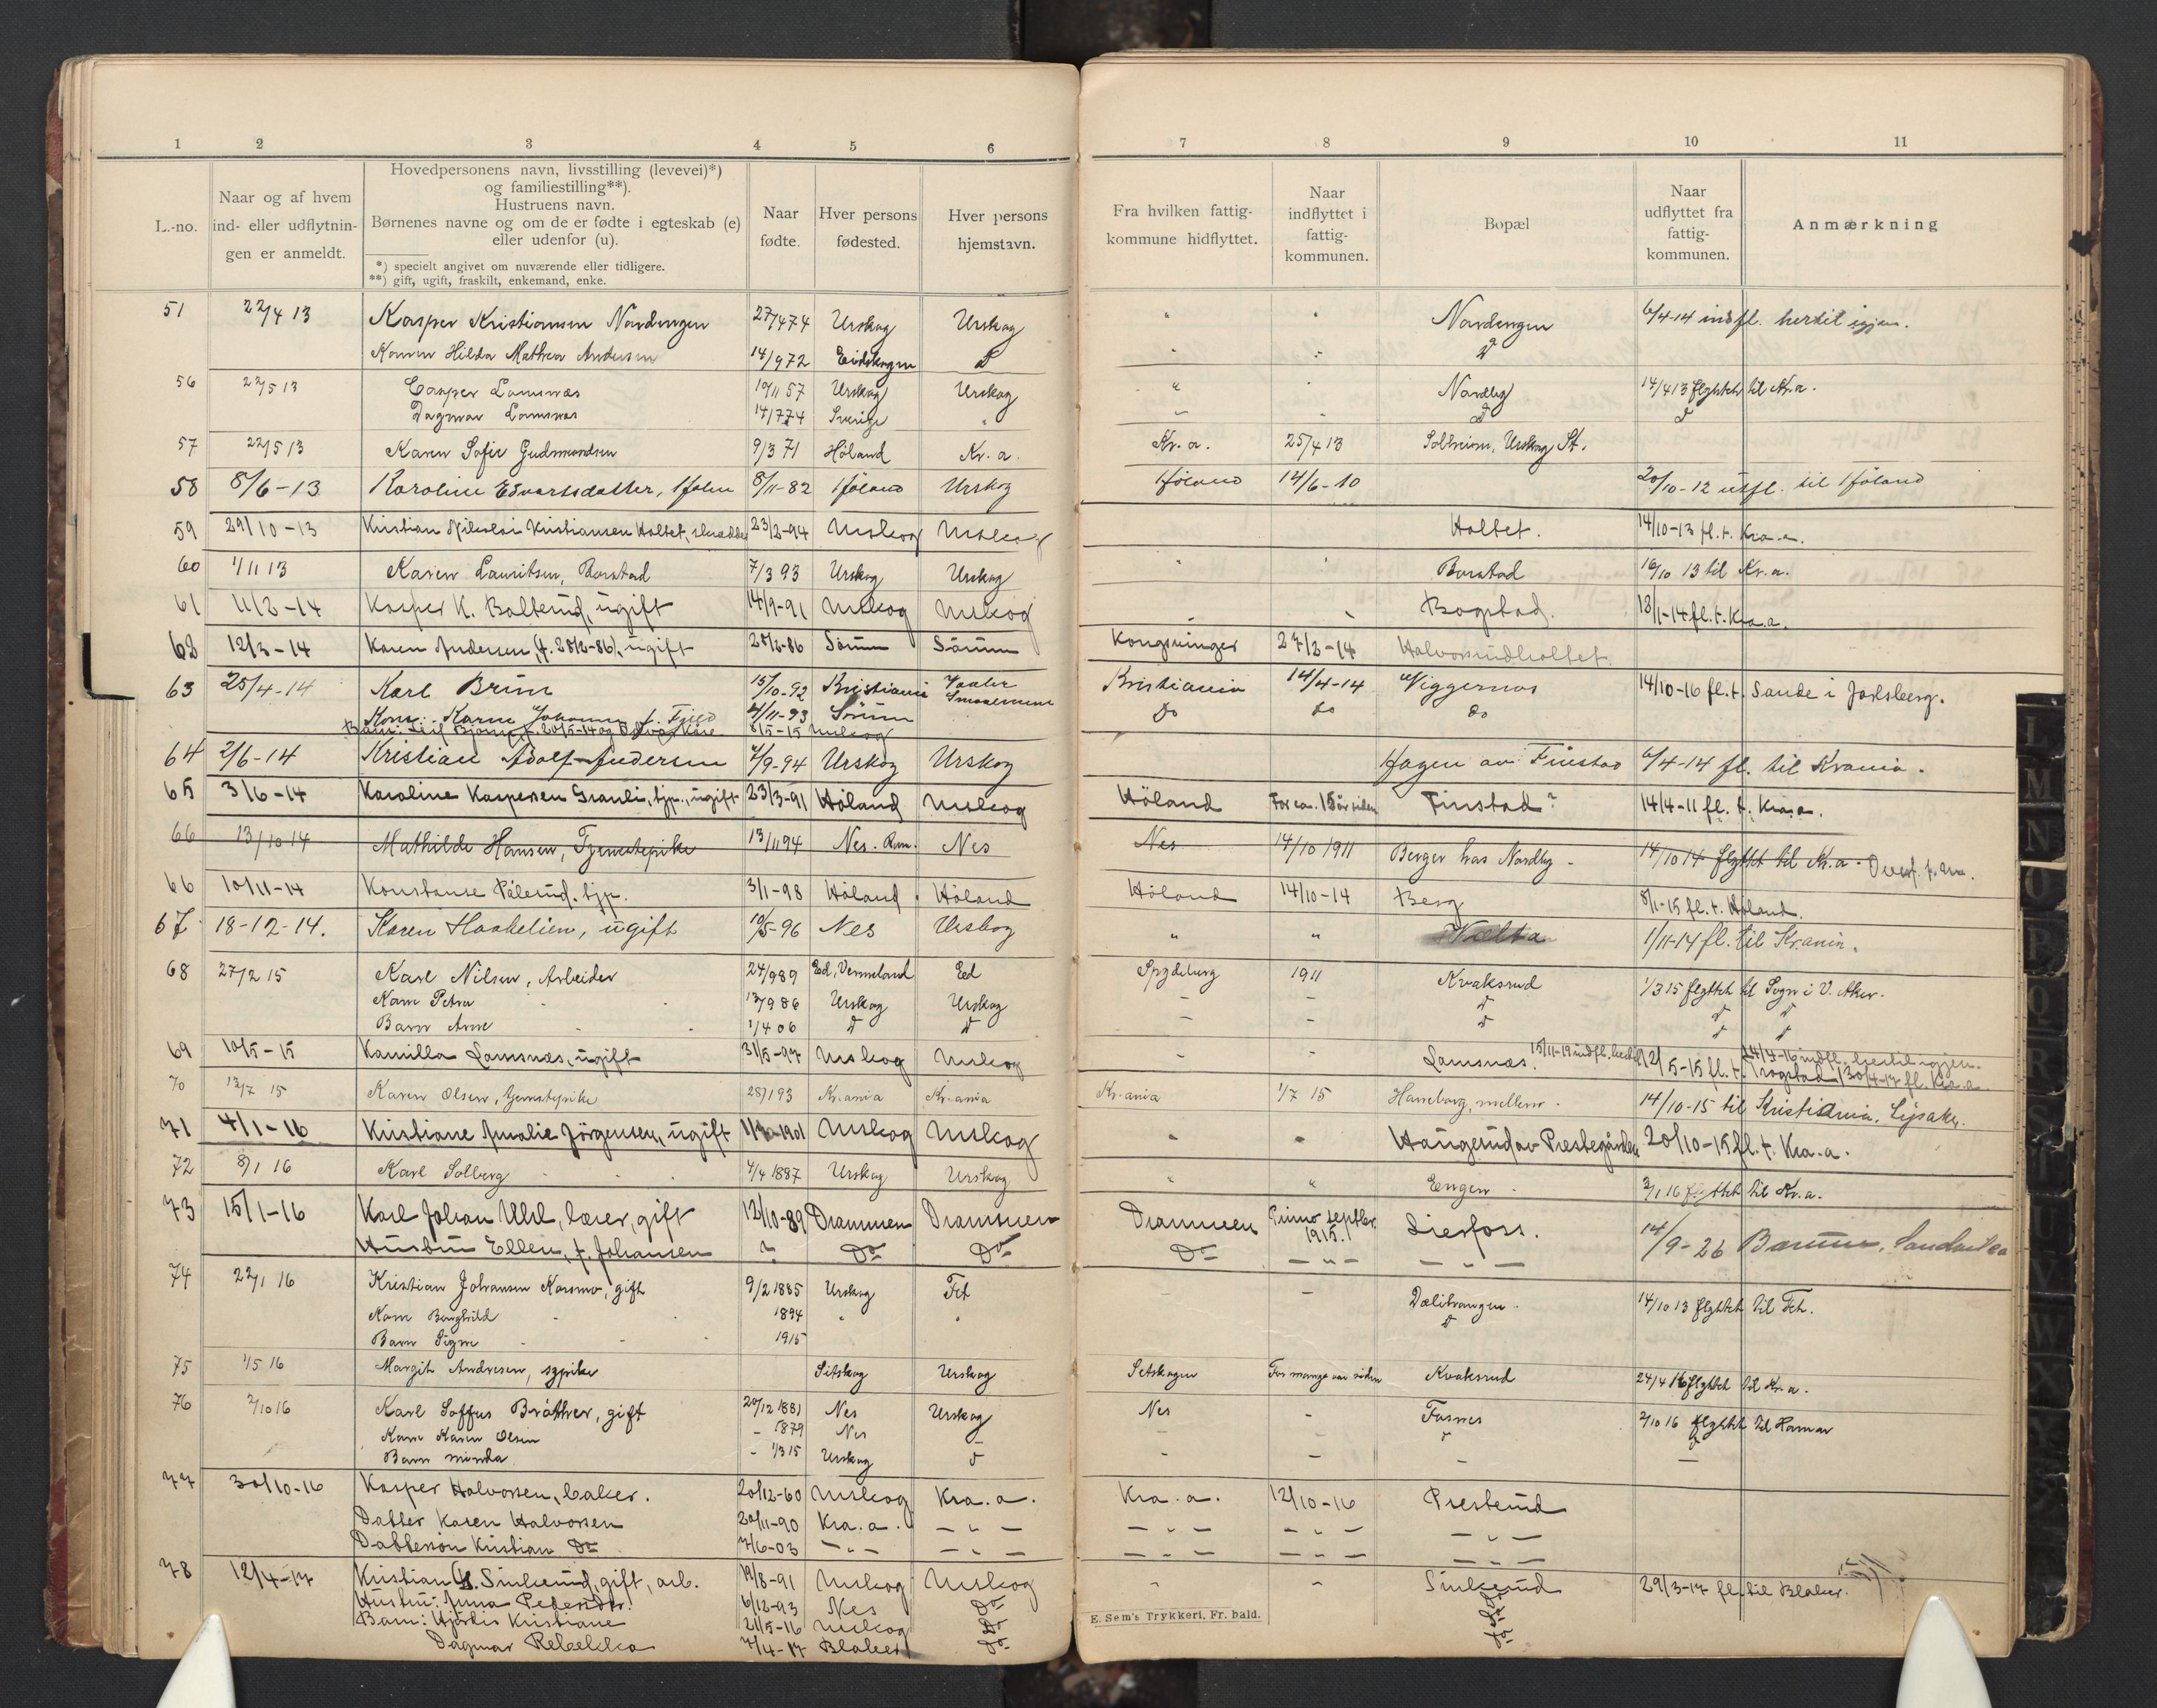 1 2 3 4 5 6 7 8 9 10 11
L.-no.
Naar og af hvem ind- eller udflytnin-gen er anmeldt.
Hovedpersonens navn, livsstilling (levevei)*)
og familiestilling**).
Hustruens navn.
Børnenes navne og om de er fødte i egteskab (e)
eller udenfor (u).
*) specielt angivet om nuværende eller tidligere.
**) gift, ugift, fraskilt, enkemand, enke.
Naar fødte.
Hver persons fødested.
Hver persons hjemstavn.
Fra hvilken fattig-kommune hidflyttet.
Naar indflyttet i fattig-kommunen.
Bopæl
Naar udflyttet fra fattig-kommunen.
Anmærkning
51 22/4 13 Kasper Kristiansen Nordengen 27/4 74 Urskog Urskog " " Nordengen 6/4-14 indfl. hertil igjen.
Konen Hilda Mathea Andersen 14/9 72 Eidskogen D " " D
56 22/5 13 Casper Lamsnæs 19/11 57 Urskog Urskog " " Nordby 14/4 13 flyttet til Kr.a.
Dagmar Lamsnæs 14/7 74 Sverige " " " D D
57 22/5 13 Karen Sofie Gudmundsen 9/3 71 Høland Kr. a. Kr. a. 25/4 13 Solheim, Urskog St.
58 8/6-13 Karoline Edvartsdatter, Holm 8/11-82 Höland Urskog Höland 14/6-10 20/10-12 utfl. til Höland
59 29/10-13 Kristian Nikolai Kristiansen Holtet, skrædder 23/2-94 Urskog Urskog Holtet. 14/10-13 fl. t. Kra.a.
60 1/11 13 Karen Lauritsen, Borstad 7/3 93 Urskog Urskog " " Borstad 10/10 13 til Kr.a.
61 11/2-14 Kasper K. Bolterud, ugift 14/9-91 Urskog Urskog Bogstad. 13/1-14 fl. t. Kra.a.
62 12/3-14 Karen Andersen, (f. 25/2-86), ugift 25/2-86 Sörum Sörum Kongsvinger 27/2-14 Halvorsrudholtet
63 25/4-14 Karl Brun 15/10-92 Kristiania Vaaler Smaalenene Kristiania 14/4-14 Viggernas 14/10-16 fl. t. Sande i Jarlsberg.
Kone: Karen Johanne f. 4/11-93 Sörum Do Do Do
Barn: Leif Bjarne f. 20/5-14 og Kåre 8/5-15 Urskog
64 2/6-14 Kristian Adolf Andersen 4/9-94 Urskog Urskog Hagen av Finstad 6/4-14 fl. til Krania.
65 3/6-14 Karoline Kaspersen Granli, tjp., ugift 23/3-91 Höland Urskog Höland For ca. 15 år siden Finstad? 14/4-11 fl. t. Kra.a.
66 13/10 14 Mathilde Hansen, Tjenestepike 13/11 94 Nes. Rom. Nes Nes 14/10 1911 Berger hos Nordby 14/10 14 flyttet til Kr.a.
66 10/11-14 Konstanse Pålerud, tjp. 3/1-98 Höland Höland Höland 14/10-14 Berg 8/1-15 fl. t. Höland.
67 18-12-14. Karen Haakelien, ugift 10/5-96 Nes Urskog " " 1/11-14 fl. til Krania.
68 27/2 15 Karl Nilsen, Arbeider 24/9 89 Ed, Vermeland Ed Spydeberg 1911 Kvaksrud 1/3 15 flyttet til Sogn i V. Aker.
Kone Petra 13/9 86 Urskog Urskog - - D D D
Barn Arne 1/4 06 D D - - D D D
69 10/5-15 Kamilla Lamsnæs, ugift 31/5-97 Urskog Urskog - - Lamsnæs. 15/11-19 indfl. hertil 12/5-15 fl. t. Trogstad 24/4-16 indfl. hertil igjen. 30/4-17 fl. Kra.a
70 13/7 15 Karen Olsen, tjenestepike 28/1 93 Kr.ania Kr.ania Kr.ania 1/7 15 Haneborg, mellem 14/10-15 til Kristiania, Lysaker.
71 4/1-16 Kristiane Amalie Jörgensen, ugift 1901 Urskog Urskog " " Haugerud av Prestegården 20/10-15 fl. t. Kra.a.
72 8/1 16 Karl Solberg 4/4 1887 Urskog Urskog " " Engen 3/1 16 flyttet til Kr.a.
73 15/1-16 Karl Johan Uhl, lærer, gift 12/10-89 Drammen Drammen Drammen Primo septbr. 1915. Lierfoss. 14/9-26 Bærum, Sandvika
Hustru Ellen, f. Johansen " Do Do Do - " - - " -
74 22/1 16 Kristian Johansen Korsmo, gift 9/2 1885 Urskog Fet - - Dælitrangen 14/10 13 flyttet til Fet.
Kone Borghild 1894 " " D
Barn Signe 1915
75 1/5 16 Margit Andresen, sypike Sitskog Urskog Setskogen For mange aar siden Kvaksrud 24/4 16 flyttet til Kr.a.
76 2/10 16 Karl Soffus Bråther, gift 20/12 1881 Nes Urskog Nes - Fosnes 2/10 16 flyttet til Hamar
Kone Karen Olsen - 1879 Nes - - - D D
Barn Minda - 1/3 15 Urskog D - - - -
77 30/10-16 Kasper Halvorsen, baker. 20/12-60 Urskog Kra.a. Kra.a. 12/10-16 Presterud
Datter Karen Halvorsen 20/11-90 Kra.a. - " - - " - - " - - " -
Dattersön Kristian Do 7/6-03 - " - - " - - " - - " - - " -
78 12/4-17 Kristian G. Sinkerud, gift, arb. 19/8-91 Urskog Urskog " " Sinkerud 29/3-17 fl. til Blaker.
Hustru: Anna Petersdtr. 6/12-93 Nes Do Do
Barn: Hjördis Kristiane 21/5-16 Urskog Do Do
Dagmar Rebekka 7/4-17 Blaker Do Do
E. Sem's Trykkeri, Fr.hald.
L
M
N
O
P
Q
R
S
T
U
V
W